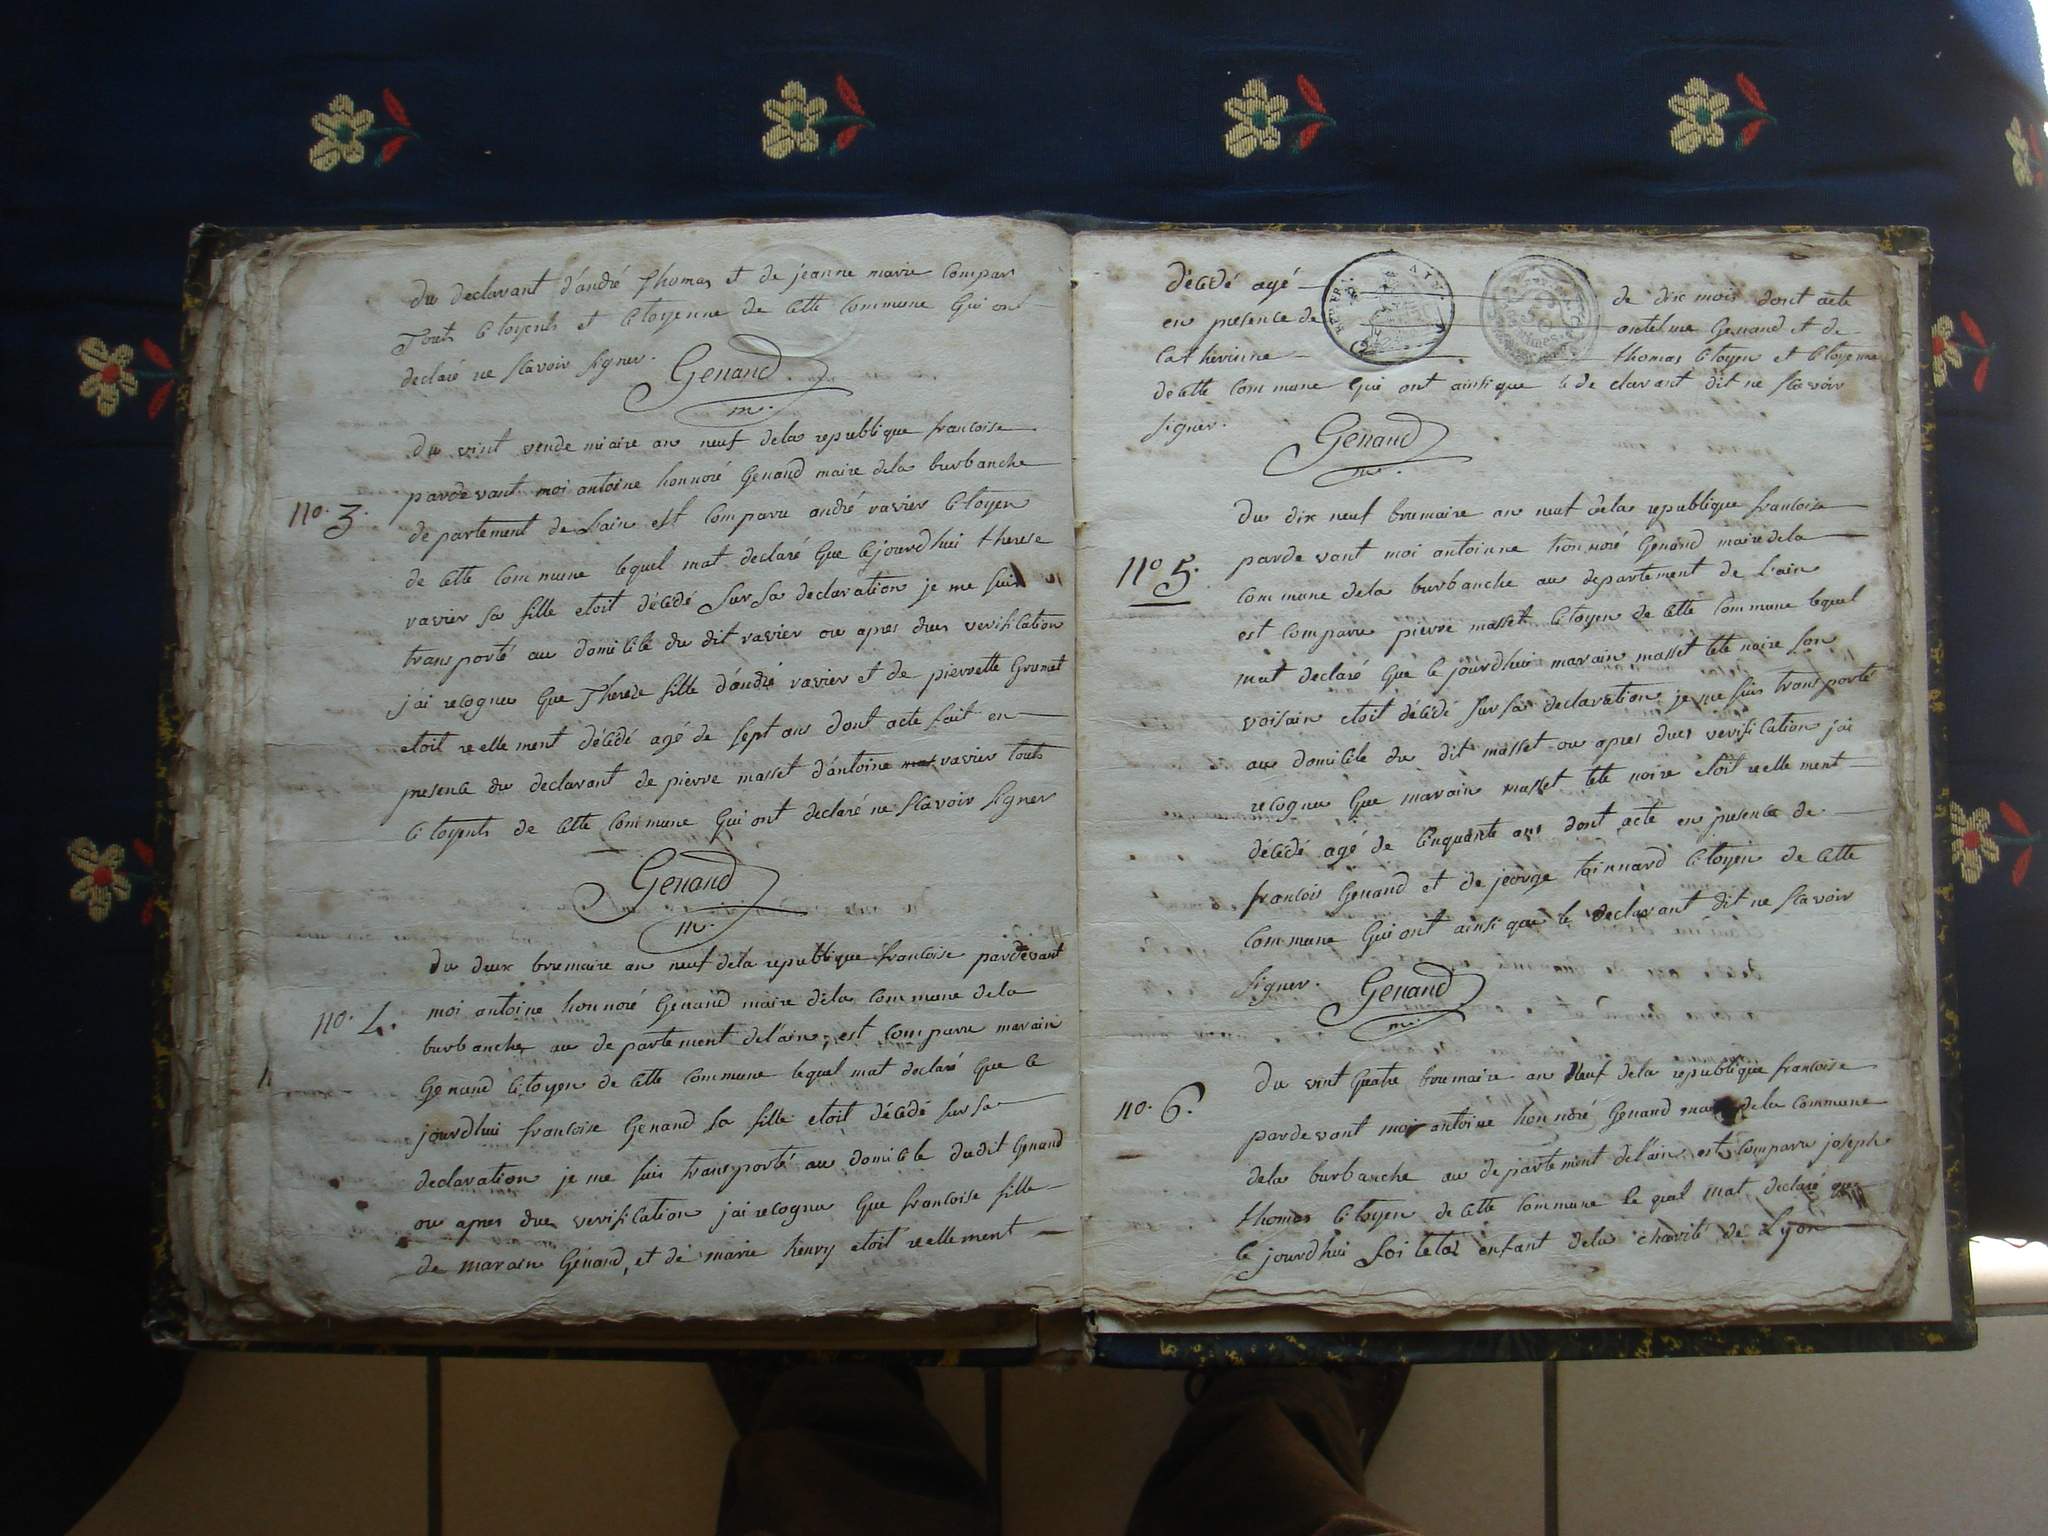 du declarant d'andré thomas et de jeanne marie compar
Touts citoyents et citoyenne de cette commune qui ont
declaré ne scavoir signer.
Genand
m.
du vint vende miaire an neuf dela republique francoise
pardevant moi antoine honnoré Genand maire dela burbanche
no. 3.
de partement de Lain est comparu andré ravier citoyen
de cette commune lequel mat declaré que cejourdhui therese
ravier sa fille etoit décédé sur sa declaration je me suis
transporté au domicile du dit ravier ou apres dues verification
jai recognu que Therese fille d'andré ravier et de pierrette Grumet
etoit reellement décédé agé de sept ans dont acte fait en
presence du declarant de pierre masset d'antoine ravier touts
citoyents de cette commune qui ont declaré ne scavoir signer
Genand
m.
du deux brumaire an neuf dela republique francoise pardevant
no. 4.
moi antoine honnoré Genand maire dela commune dela
burbanche au de partement delain, est comparu marain
Genand citoyen de cette commune lequel mat declaré que ce
jourdhui francoise Genand sa fille etoit décédé sur sa
declaration je me suis transporté au domicile dudit Genand
ou apres dues verification jai recognu que francoise fille
de marain Genand, et de marie henry etoit reellement
décédé agé de dix mois dont acte
en presence de antelme Genand et de
Catherinne thomas citoyen et citoyenne
de cette commune qui ont ainsi que le declarant dit ne scavoir
signer.
Genand
m.
du dix neuf brumaire an neuf dela republique francoise
no 5.
parde vant moi antoinne honnoré Genand maire dela
commune dela burbanche au departement de Lain
est comparu pierre masset citoyen de cette commune lequel
mat declaré que le jourdhui marain masset tete noire son
voisain etoit décédé sur sa declaration je me suis transporté
au domicile du dit masset ou apres dues verification jai
recognu que marain masset tete noire etoit reellement
décédé agé de cinquante ans dont acte en presence de
francois Genand et de jeorge citoyen de cette
commune qui ont ainsi que le declarant dit ne scavoir
signer.
Genand
m.
du vint quatre brumaire an neuf dela republique francoise
no. 6.
pardevant moi antoine honnoré Genand maire dela commune
dela burbanche au departement delain est comparu joseph
thomas citoyen de cette commune le quel mat declaré que
le jourdhui enfant dela charité de Lyon